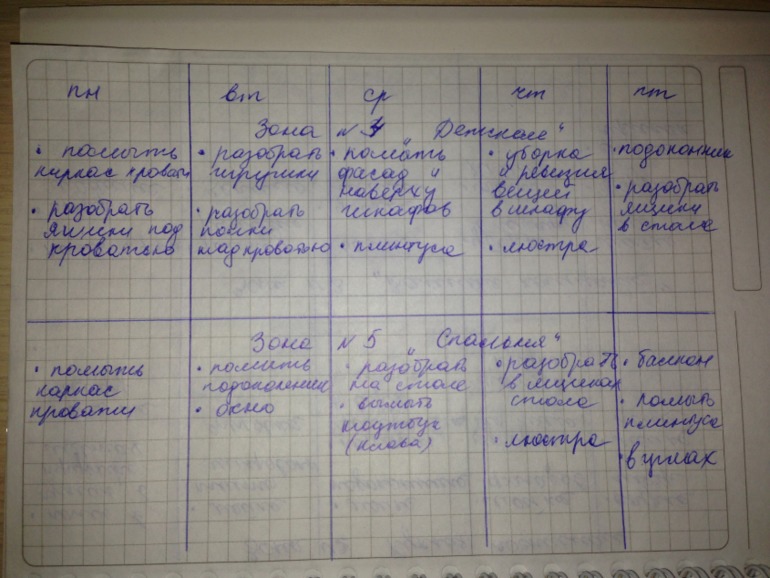 пн
вт
ср
чт
пт
Зона № 4 "Детская"
• помыть
каркас кровати
• разобрать
ящики под
кроватью
• разобрать
игрушки
• разобрать
полки
над кроватью
• помыть
фасад и
наверху
шкафов
• плинтуса
• уборка
и ревизия
вещей
в шкафу
• люстра
• подоконник
• разобрать
ящики
в столе
Зона № 5 "Спальня"
• помыть
каркас
кровати
• помыть
подоконник
• окно
• разобрать
на столе
• вымыть
ноутбук
(клава)
• разобрать
в ящиках
стола
• люстра
• балкон
• помыть
плинтуса
• в углах